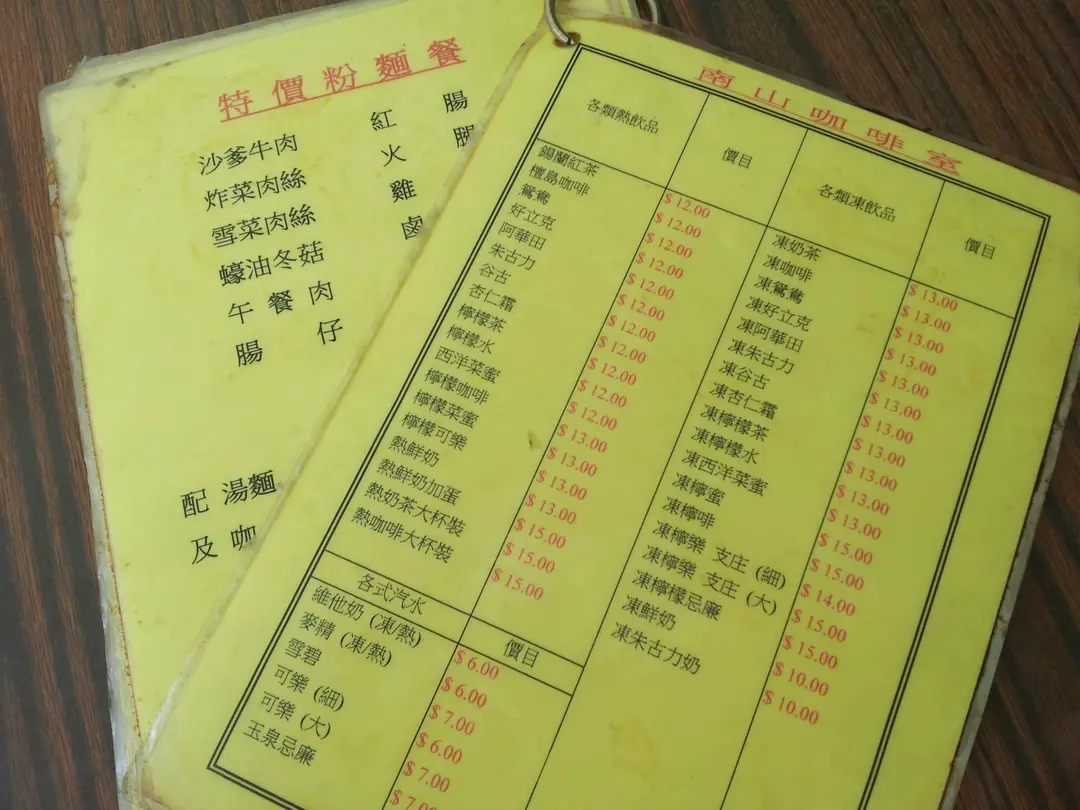 特價粉麵餐
沙爹牛肉 紅 腸
炸菜肉絲 火 腿
雪菜肉絲 雞
蠔油冬菇 鹵
午 餐 肉
腸 仔
配 湯麵
及 咖
南山咖啡室
各類熱飲品 價目
錫蘭紅茶 $ 12.00
檀島咖啡 $ 12.00
鴛鴦 $ 12.00
好立克 $ 12.00
阿華田 $ 12.00
朱古力 $ 12.00
谷古 $ 12.00
杏仁霜 $ 12.00
檸檬茶 $ 12.00
檸檬水 $ 12.00
西洋菜蜜 $ 12.00
檸檬咖啡 $ 13.00
檸檬菜蜜 $ 13.00
檸檬可樂 $ 13.00
熱鮮奶 $ 13.00
熱鮮奶加蛋 $ 15.00
熱奶茶大杯裝 $ 15.00
熱咖啡大杯裝 $ 15.00
各式汽水 價目
維他奶 (凍/熱) $ 6.00
麥精 (凍/熱) $ 6.00
雪碧 $ 7.00
可樂 (細) $ 6.00
可樂 (大) $ 7.00
玉泉忌廉
各類凍飲品 價目
凍奶茶 $ 13.00
凍咖啡 $ 13.00
凍鴛鴦 $ 13.00
凍好立克 $ 13.00
凍阿華田 $ 13.00
凍朱古力 $ 13.00
凍谷古 $ 13.00
凍杏仁霜 $ 13.00
凍檸檬茶 $ 13.00
凍檸檬水 $ 13.00
凍西洋菜蜜 $ 13.00
凍檸蜜 $ 15.00
凍檸啡 $ 15.00
凍檸樂 支庄 (細) $ 14.00
凍檸樂 支庄 (大) $ 15.00
凍檸檬忌廉 $ 15.00
凍鮮奶 $ 10.00
凍朱古力奶 $ 10.00